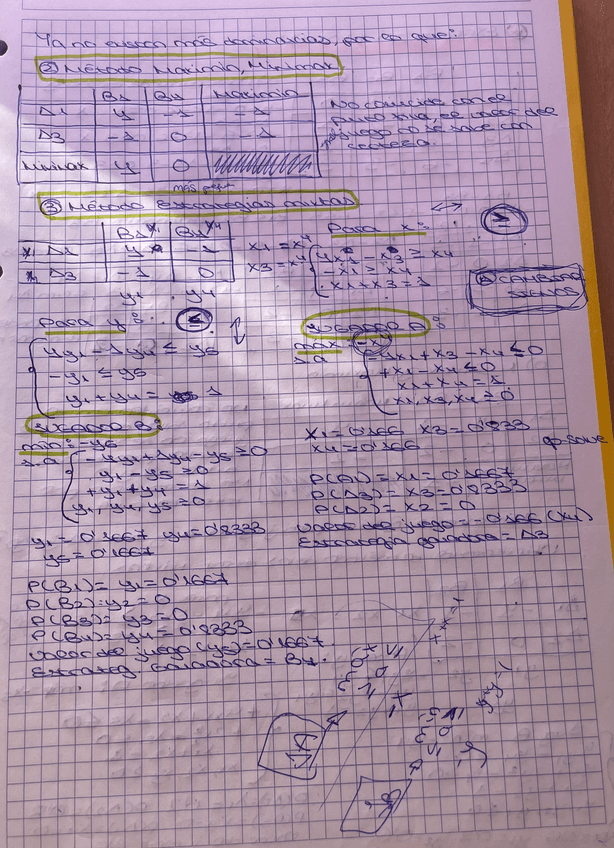 Ya no existen más dominancias, por lo que:
② Método Maximin, Minimax
B1 B4 Maximin
A1 4 -1 -1
A3 -1 0 -1
Minimax 4 0
No coincide con el
punto silla, el valor del
juego no se sabe con
certeza.
③ Método Estrategias mixtas
B1 B4
X1 A1 4 -1
A3 -1 0
y1 y4
Para x:
≥
x1 = x4
x3 = x4
4x1 - x3 ≥ x4
-x1 ≥ x4
x1 + x3 = 1
Cambiamos
signos
Para y: ≤
4y1 - 1y4 ≤ y5
-y1 ≤ y5
y1 + y4 = 1
Jugador A:
max = x4
s.a
-4x1 + x3 - x4 ≤ 0
+x1 - x4 ≤ 0
x1 + x4 = 1
x1, x3, x4 ≥ 0
Jugador B:
-y5
s.a
-4y1 + 1y4 - y5 = 0
y1 - y5 = 0
+y1 + y4 = 1
y1, y4, y5 = 0
X1 = 0'166 X3 = 0'8333
X4 = 0'166
P(A1) = X1 = 0'1667
P(A3) = X3 = 0'8333
P(A2) = X2 = 0
Valor del juego = -0'166 (X4)
Estrategia ganadora = A3
y1 = 0'1667 y4 = 0'8333
y5 = 0'1667
P(B1) = y1 = 0'1667
P(B2) = y2 = 0
P(B3) = y3 = 0
P(B4) = y4 = 0'8333
Valor del juego (y5) = 0'1667
Estrateg. ganadora = B4.